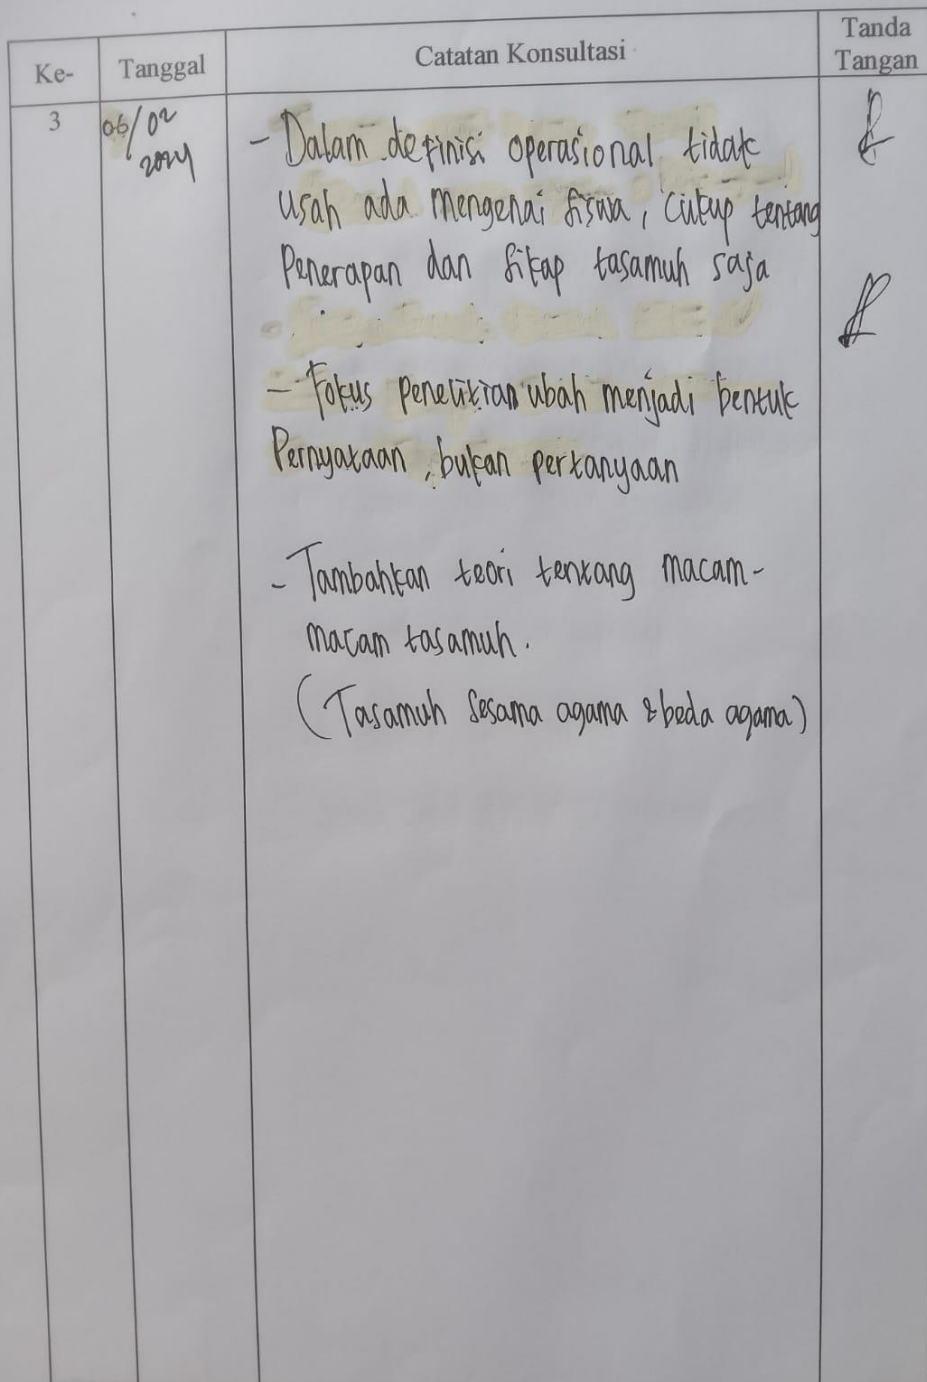 Ke- Tanggal Catatan Konsultasi Tanda Tangan
3 06/02 2024
- Dalam definisi operasional tidak
usah ada mengenai siswa, cukup tentang
Penerapan dan sikap tasamuh saja
- Fokus penelitian ubah menjadi bentuk
Pernyataan, bukan pertanyaan
- Tambahkan teori tentang macam-
macam tasamuh.
(Tasamuh sesama agama & beda agama)